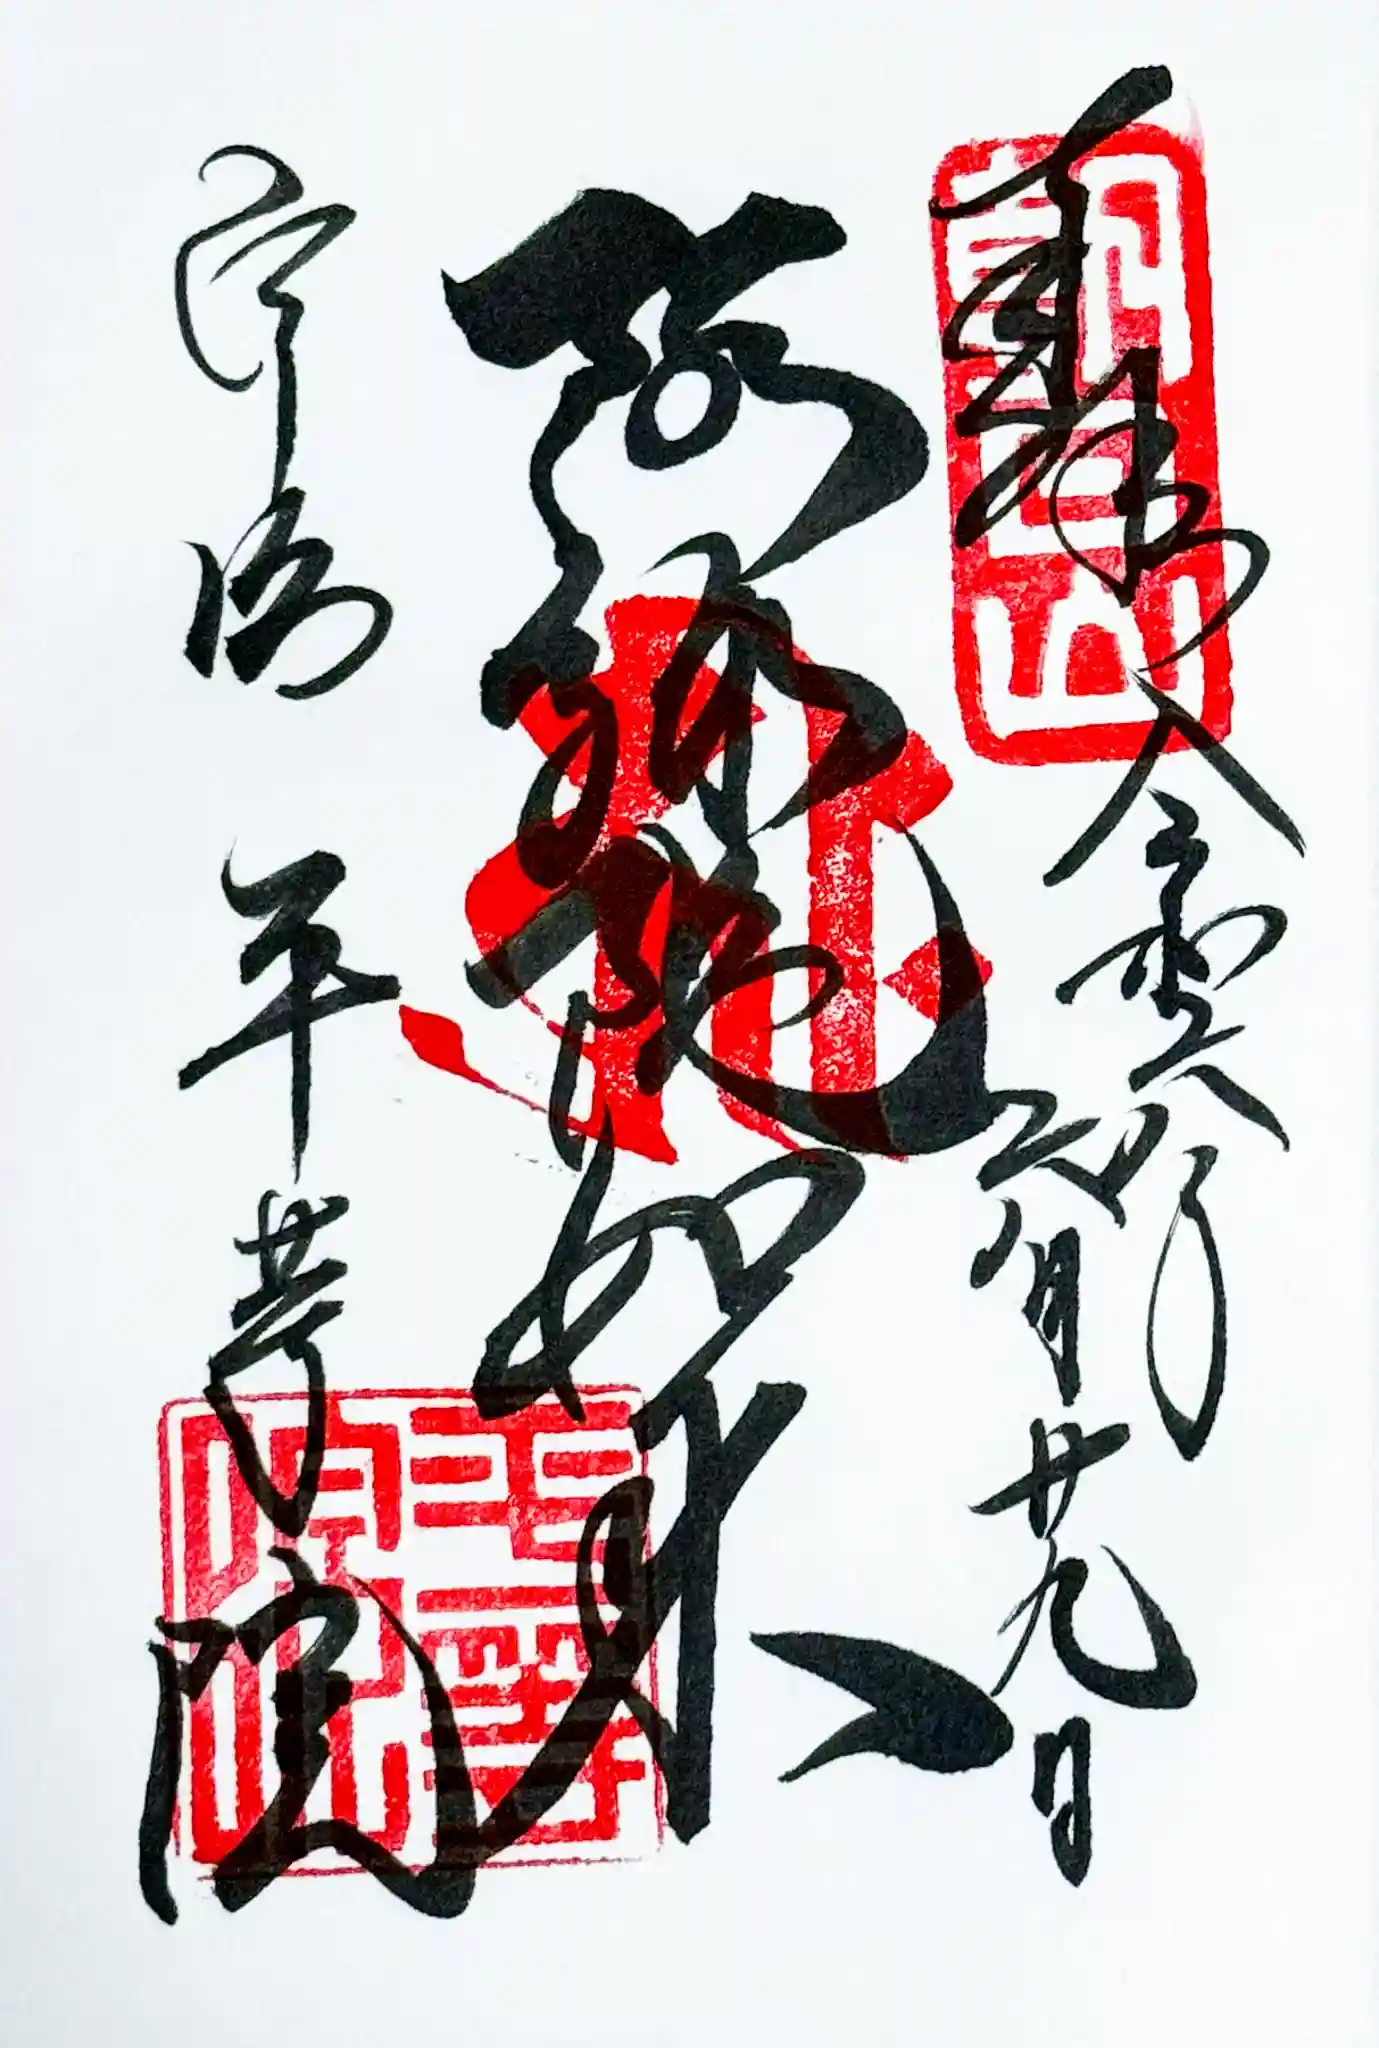 朝日山
奉拝 令和五癸卯
六月廿九日
阿弥陀如来
宇治 平等院
平等院印